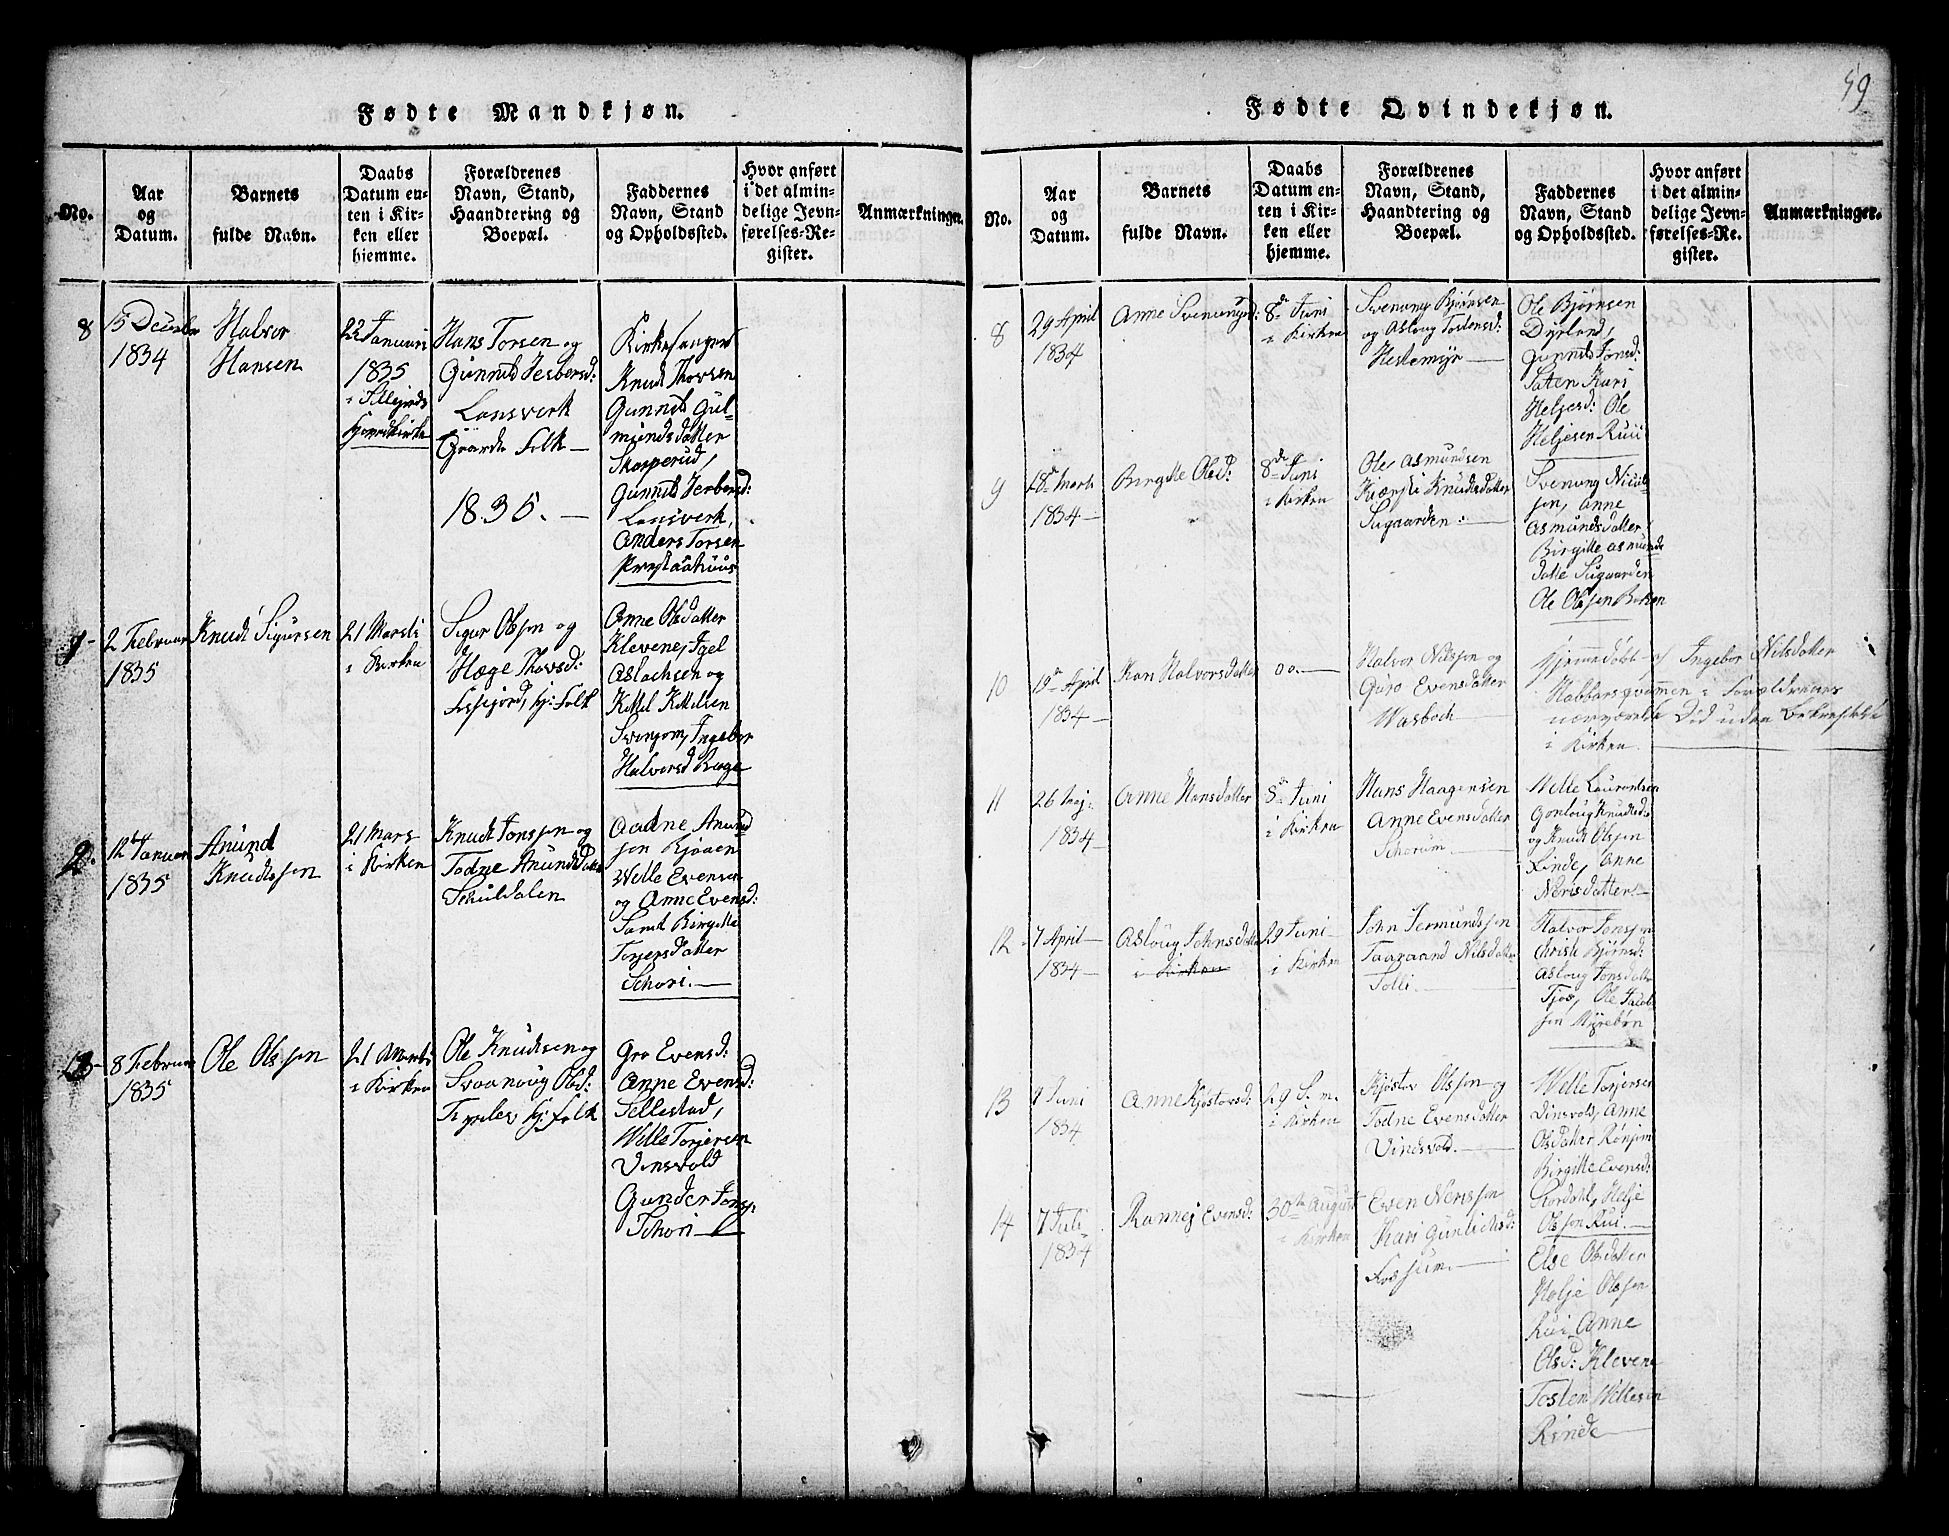 59
Fødte Mandkjøn.
No.
Aar
og
Datum.
Barnets
fulde Navn.
Daabs
Datum en-
ten i Kir-
ken eller
hjemme.
Forældrenes
Navn, Stand,
Haandtering og
Boepæl.
Faddernes
Navn, Stand
og Opholdssted.
Hvor anført
i det almin-
delige Jevn-
førelses-Re-
gister.
Anmærkninger.
8
15 December
1834
Halvor
Hansen
22 Januari
1835
Hans Torsen og
Gunnild
Lonsverk
Gaarde Folk
1835.
Kirkesanger
Knudt Thovsen
Gunnild Gul-
mundsdatter
Skoperud,
Gunnild
Lonsverk,
Anders Torsen
1
2 Februar
1835
Knudt Sigursen
21 Marsti
i Kirken
Sigur Olsen og
Hæge Thovsd:
gj: Folk
Anne Olsdatter
Klevene,
Aslachsen og
Kittel Kittelsen
Ingebor
Halversd
2.
12te Januar
1835
Anund
Knudtssen
21 Mars
i Kirken
Knudt Jonssen og
Todne Anundsdatter
Schuldalen
Aadne Anund
sen
Welle Evensen
og Anne Evensd:
Samt Birgitte
Torjersdatter
Schori.
3
8 Februar
1835
Ole Olssen
21 Martsi
i Kirken
Ole Knudtsen og
Svaanoug Olsd:
gj: folk
Gro Evensd:
Anne Evensd:
Sellestad,
Welle Torjersen
Vinsvold
Gunder Jonss:
Schori
Fødte Qvindekjøn.
No.
Aar
og
Datum.
Barnets
fulde Navn.
Daabs
Datum en-
ten i Kir-
ken eller
hjemme.
Forældrenes
Navn, Stand,
Haandtering og
Boepæl.
Faddernes
Navn, Stand
og Opholdssted.
Hvor anført
i det almin-
delige Jevn-
førelses-Re-
gister.
Anmærkninger.
8
29 April
1834
Anne Svenungsd:
8de Juni
i Kirken
Svenung Bjørnsen
og Asloug Tostensd:
Hestemyr
Ole Bjørnsen
Dyrland,
Gunnild Jonsd:
Kari
Heljesd: Ole
Heljesen Rui
9
18de Marti
1834
Birgitte Olsd:
8de Juni
i Kirken
Ole Asmundsen
Kiersti Knudtsdatter
Sugaarden
Svenung
sen, Anne
Asmundsdatter
Birgitte Asmunds
datter Sugaarden
Ole Olssen
10
19de April
1834
Kari Halvorsdatter
oo.
Halvor Nilssen og
Guro Evensdatter
Wasboch
Hjemmedøbt af Ingebor Nilsdatter
i Forældrenes
nærværelse Død uden Bekræftelse
i Kirken.
11
26 Maj
1834
Anne Hansdatter
8de Juni
i Kirken
Hans Haagensen
Anne Evensdatter
Schorum
Welle Laurentsen
Gonloug Knudtsd:
og Knudt Olssen
Linde, Anne
Nerisdatter
12
7 April
1834
Asloug Johnsdatter
i Kirken
29 Juni
i Kirken
John Jermundssen
Taagaand Nilsdatter
Tolli.
Halvor Jonssen
Christi Bjørnsd:
Asloug Jonsdatter
Tjos, Ole Jacob-
sen Myrebøn
13
9 Juni
1834
Anne Kjostovsd:
29 S. m.
i Kirken
Kjøstov Olssen og
Todne Evensdatter
Vindsvold.
Welle Torjersen
Vinsvold, Anne
Olsdatter Rønjom
Birgitte Evensd:
Hordahl, Helje
Olssen Rui.
14
7 Juli
1834
Rannej Evensd:
30te August
i Kirken
Even Nerissen
Kari Gunlechsd:
Fossum.
Else Olsdatter
Helje Olssen
Rui Anne
Olsd: Klevene
Tosten Wellesen
Rinde